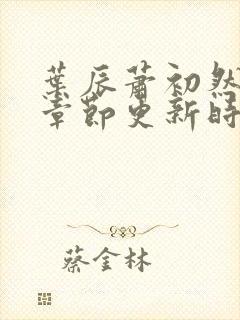 葉辰蕭初然
章節更新時
蔡金林